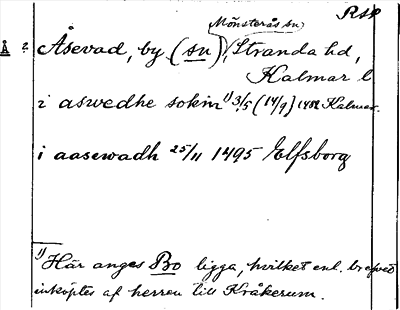 RAP
Mönsterås sn
Å 2. Åsevad, by (sn), Stranda hd,
Kalmar l
i aswedhe sokin ¹⁾ 3/5 (14/9) 1482 Kalmar.
i aasewadh 25/11 1495 Elfsborg
¹⁾ Här anges Bo ligga, hvilket enl. brefvet
inköptes af herren till Kråkerum.